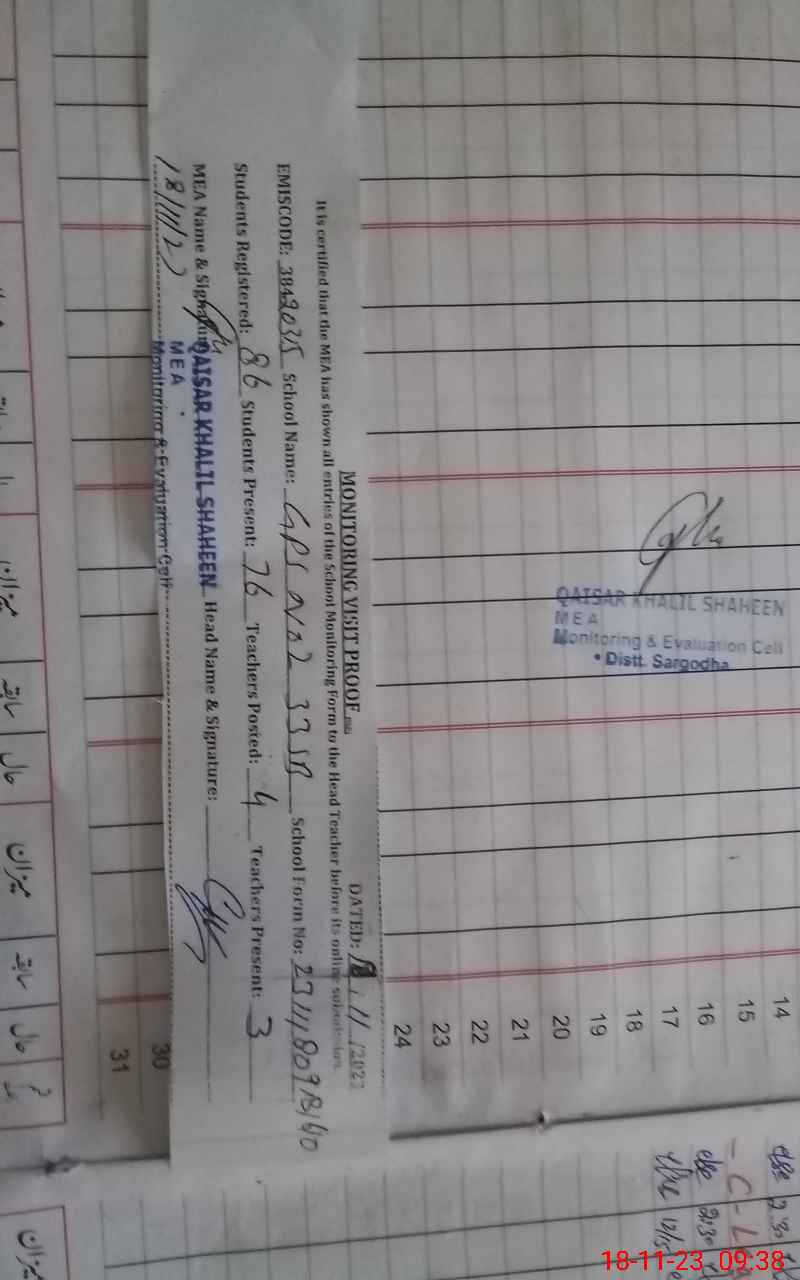 MONITORING VISIT PROOF
DATED: 18/11/2023
It is certified that the MEA has shown all entries of the School Monitoring Form to the Head Teacher before its online submission.
EMISCODE: 38420315 School Name: GPS No 2 33 SB School Form No:
Students Registered: 86 Students Present: 76 Teachers Posted: 4 Teachers Present: 3
MEA Name & Signature: QAISAR KHALIL SHAHEEN Head Name & Signature:
MEA
Monitoring & Evaluation Cell
18/11/23
QAISAR KHALIL SHAHEEN
MEA
Monitoring & Evaluation Cell
• Distt. Sargodha
14
15
16
17
18
19
20
21
22
23
24
30
31
میزان
سابقہ
حال
میزان
سابقہ
حال
میزان
18-11-23 09:38